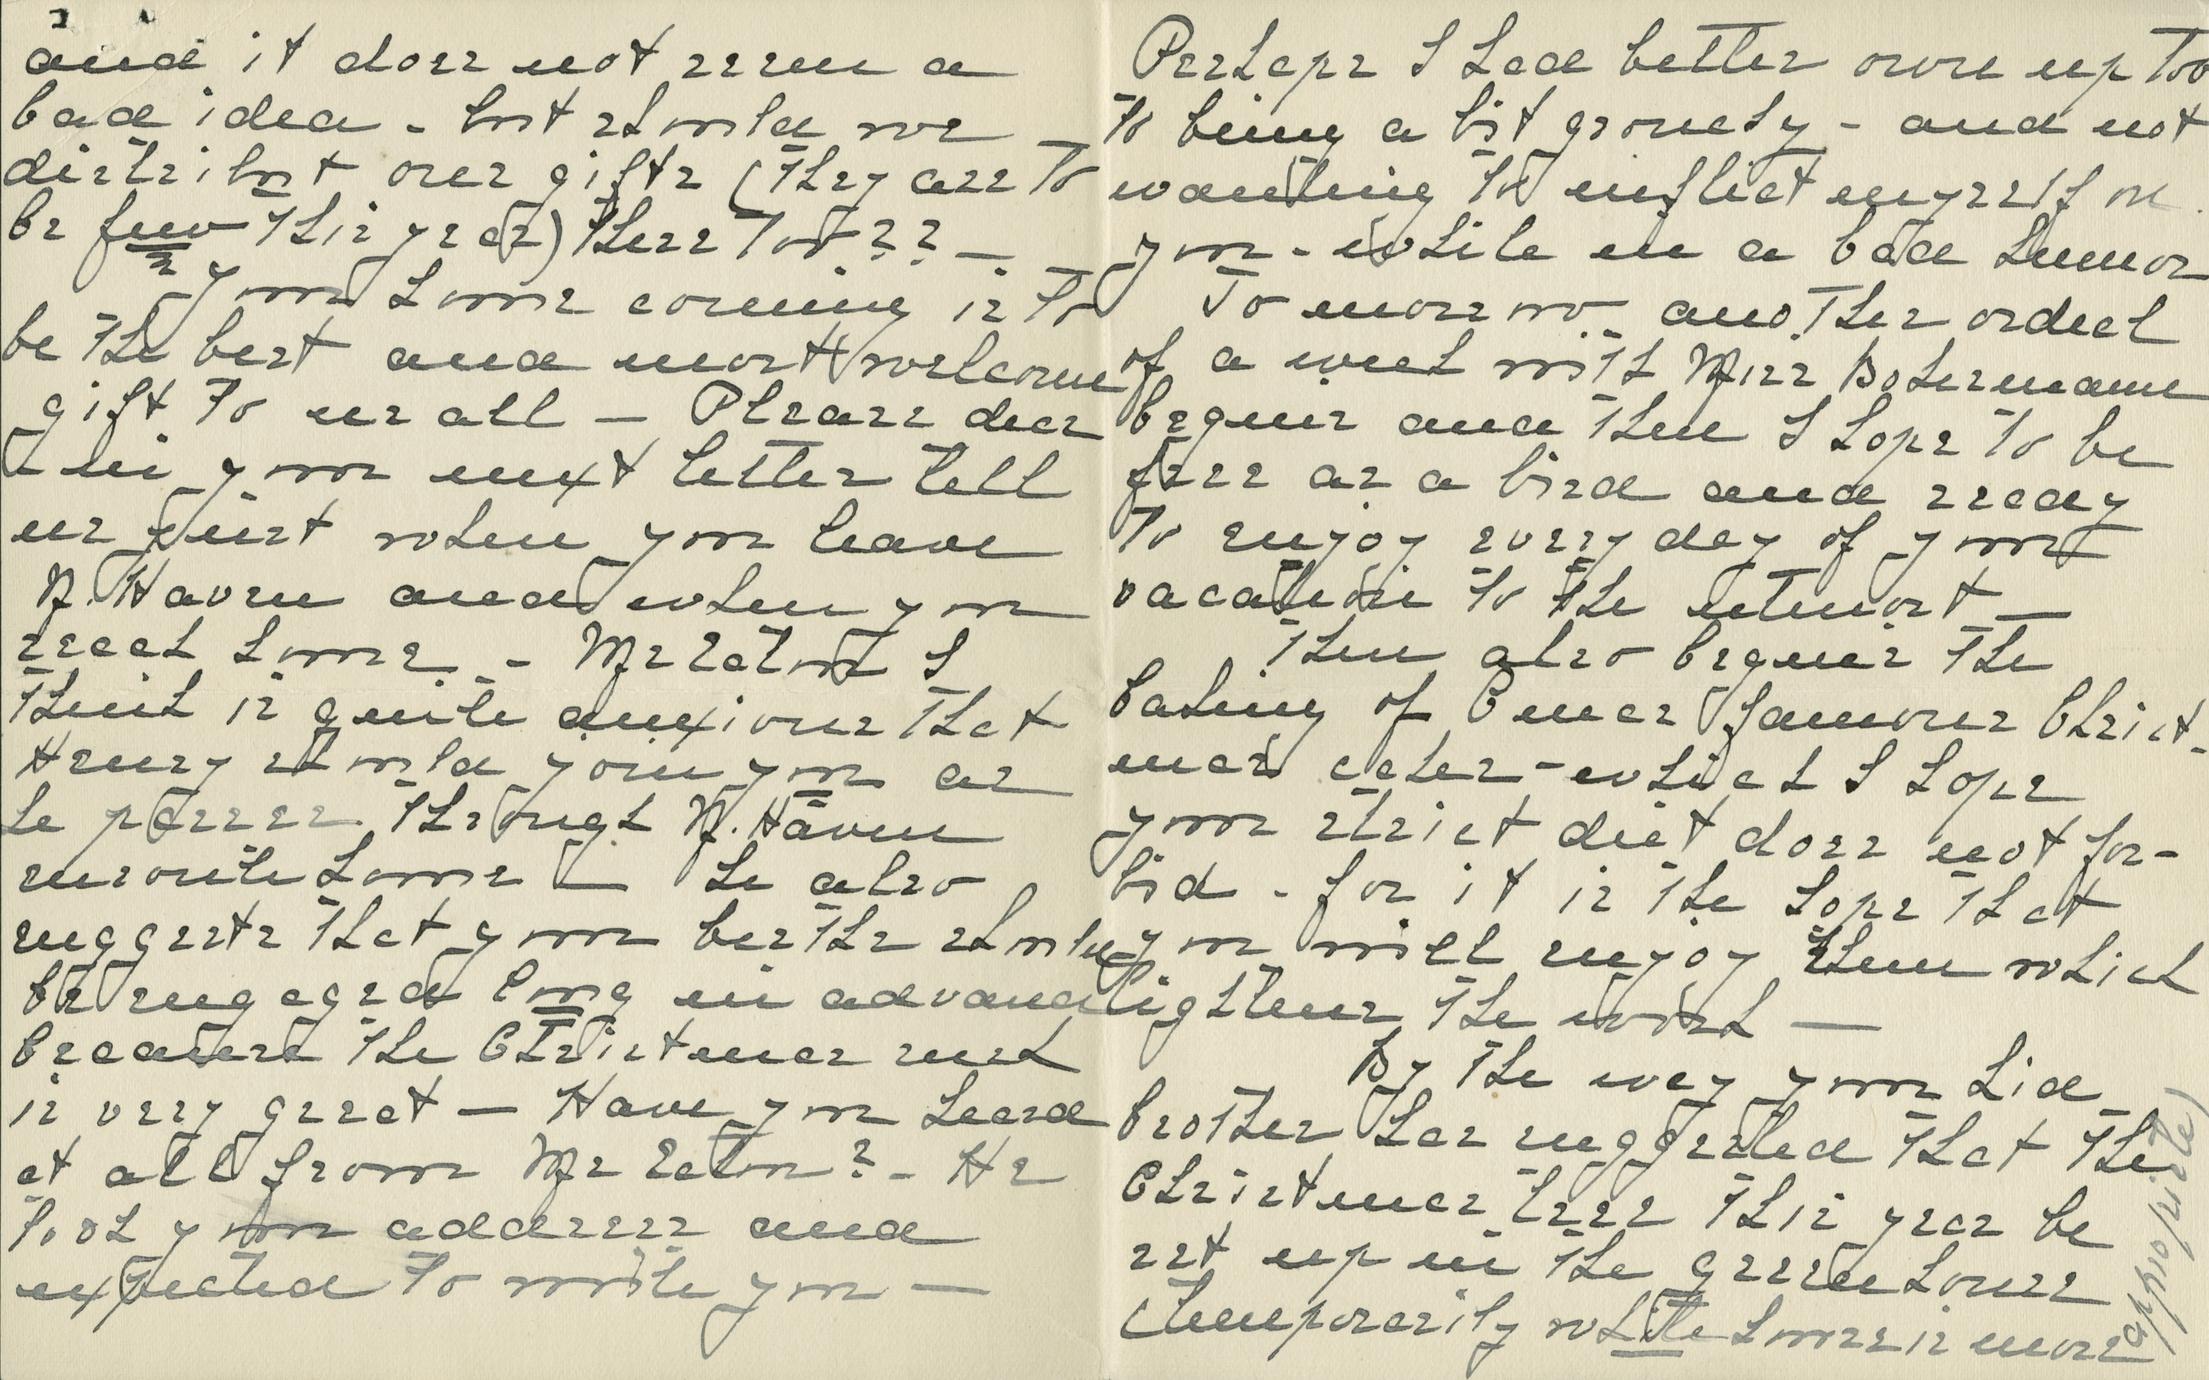 and it does not seem a
bad idea - but should we
distribut our gifts (they are to
be few this year) there too?? —
Your home coming is to
be the best and most welcome
gift to us all — Please dear
in your next letter tell
us just when you leave
N. Haven and when you
reach home. - Mr Eaton I
think is quite anxious that
Henry should join you as
he passes through N. Haven
enroute home — he also
suggests that your berths should
be engaged long in advance
because the Christmas rush
is very great — Have you heard
at all from Mr Eaton? - He
took your address and
expected to write you —
Perhaps I had better own up too
to being a bit grouchy - and not
wanting to inflict myself on
you - while in a bad humor
To morrow another ordeal
of a week with Miss
begins and then I hope to be
free as a bird and ready
to enjoy every day of your
vacation to the utmost —
Then also begins the
baking of Emmas famous Christ-
mas cakes - which I hope
your strict diet does not for-
bid - for it is the hope that
you will enjoy them which
lightens the work —
By the way your kid
brother has suggested that the
Christmas tree this year be
set up in the greenhouse
(temporarily white house is more
appropriate)